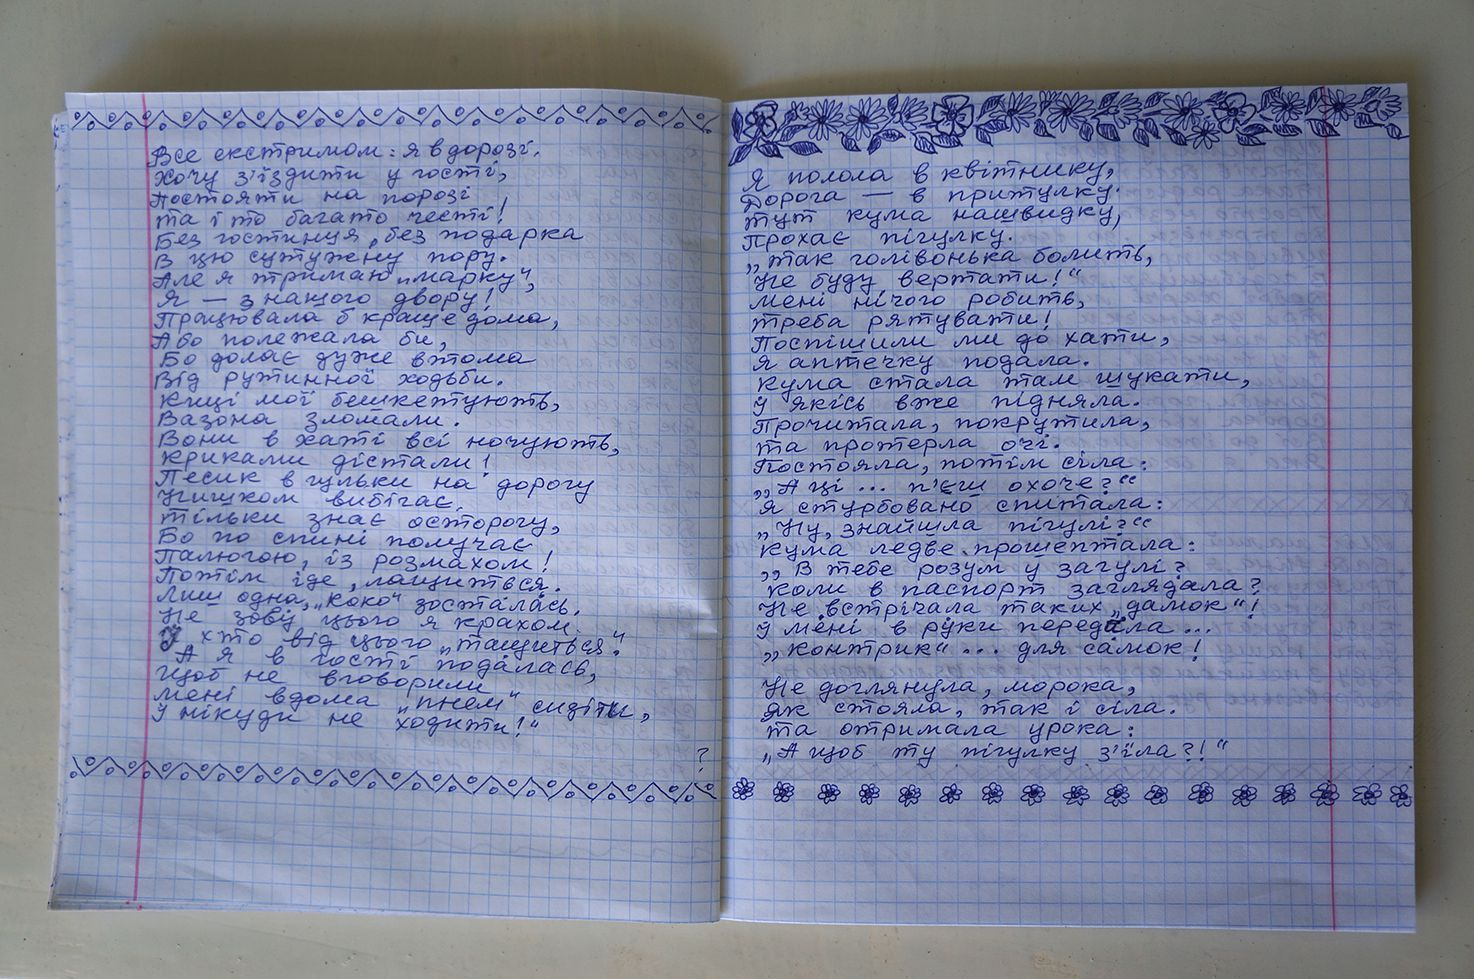 Все екстримом: я в дорозі.
Хочу з'їздити у гості,
Постояти на порозі
та і то багато честі!
Без гостинця, без подарка
В цю сутужену пору.
Але я тримаю „марку",
Я — з нашого двору!
Працювала б краще дома,
Або полежала би,
Бо долає дуже втома
Від рутинної ходьби.
Киці мої бешкетують,
Вазона зломали.
Вони в хаті всі ночують,
криками дістали!
Песик в щільки на дорогу
Нишком вибігає,
тільки знає осторогу,
Бо по спині получає
Палюгою, із розмахом!
Потім іде, лащиться.
Лиш одна „коко" зосталась.
Не зову цього я крахом.
У хто від цього „тащиться".
А я в гості подалась,
Щоб не вговорили
Мені вдома „пнем" сидіти,
У нікуди не ходити!"
?
Я полола в квітнику,
Дорога — в притулку.
тут кума нашвидку,
Прохає пігулку.
„так голівонька болить,
Не буду вертати!"
Мені нічого робить,
треба рятувати!
Поспішили ми до хати,
Я аптечку подала.
кума стала там шукати,
У якісь вже підняла.
Прочитала, покрутила,
та протерла очі.
Постояла, потім сіла:
„А ці ... п'єш охоче?"
Я стурбовано спитала:
„Ну, знайшла пігулі?"
кума ледве прошептала:
„В тебе розум у загулі?
коли в паспорт заглядала?
Не встрічала таких „дамок"!
У мені в руки передала ...
„контрик" ... для самок!
Не доглянула, морока,
як стояла, так і сіла.
та отримала урока:
„А щоб ту пігулку з'їла?!"